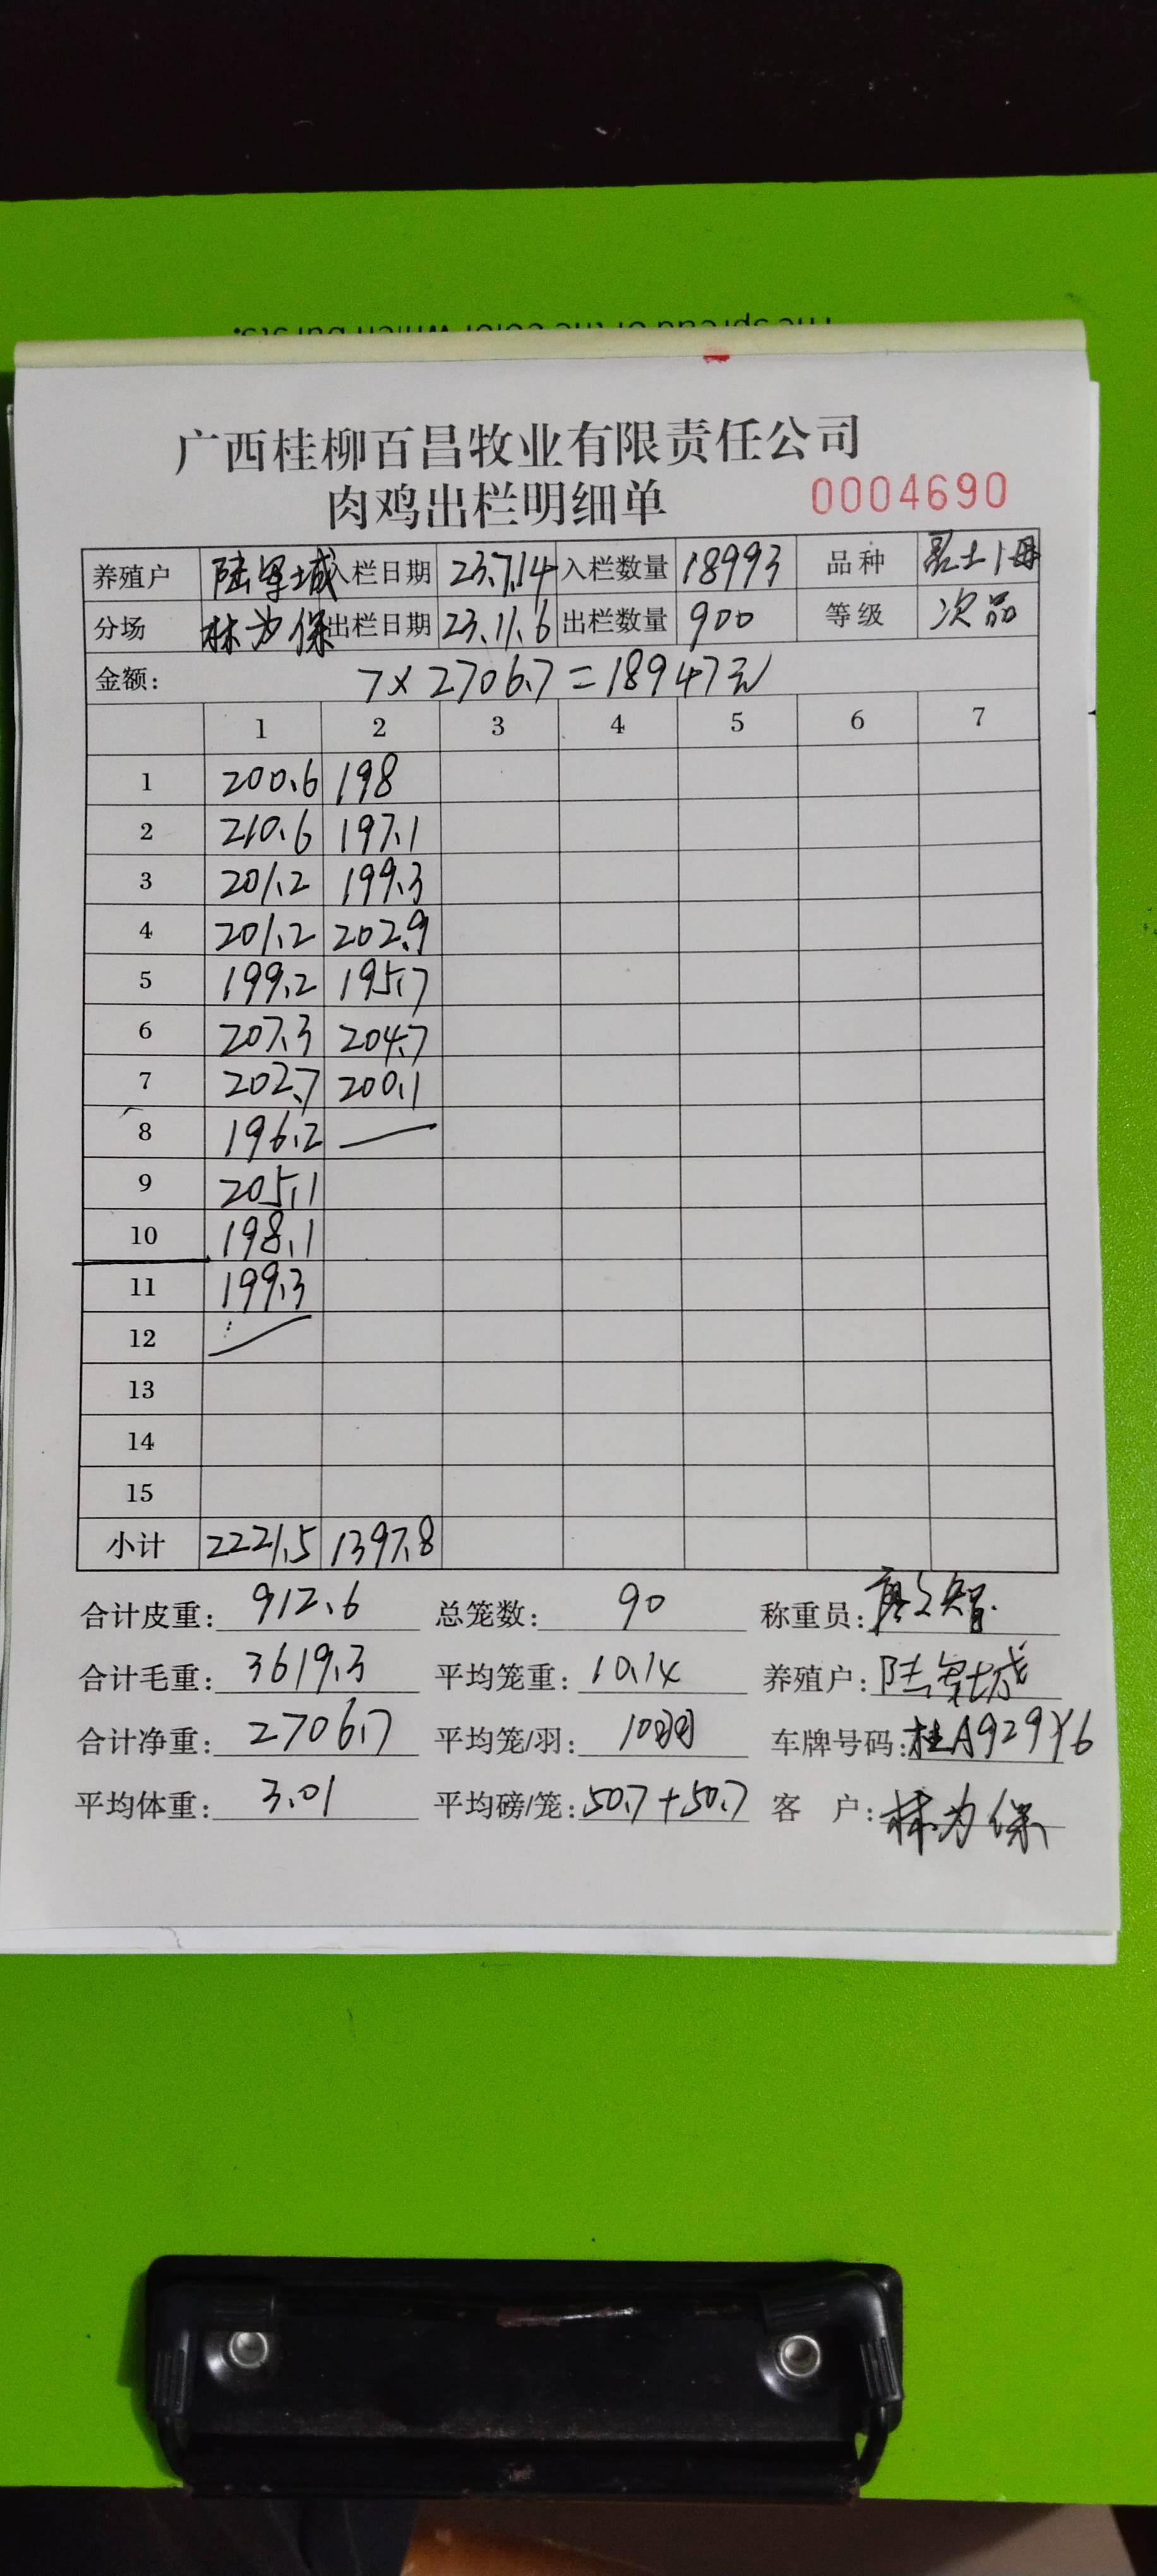 广西桂柳百昌牧业有限责任公司
肉鸡出栏明细单 0004690
养殖户 陆 入栏日期 23.7.14 入栏数量 18993 品种
分场 林为保 出栏日期 23.11.6 出栏数量 900 等级 次品
金额: 7×2706.7=18947元
1 2 3 4 5 6 7
1 200.6 198
2 210.6 197.1
3 201.2 199.3
4 201.2 202.9
5 199.2 195.7
6 207.3 204.7
7 202.7 200.1
8 196.2
9 205.1
10 198.1
11 199.3
12
13
14
15
小计 2221.5 1397.8
合计皮重: 912.6 总笼数: 90 称重员:
合计毛重: 3619.3 平均笼重: 10.14 养殖户: 陆
合计净重: 2706.7 平均笼/羽: 10羽 车牌号码: 桂A929Y6
平均体重: 3.01 平均磅/笼: 50.7+50.7 客 户: 林为保